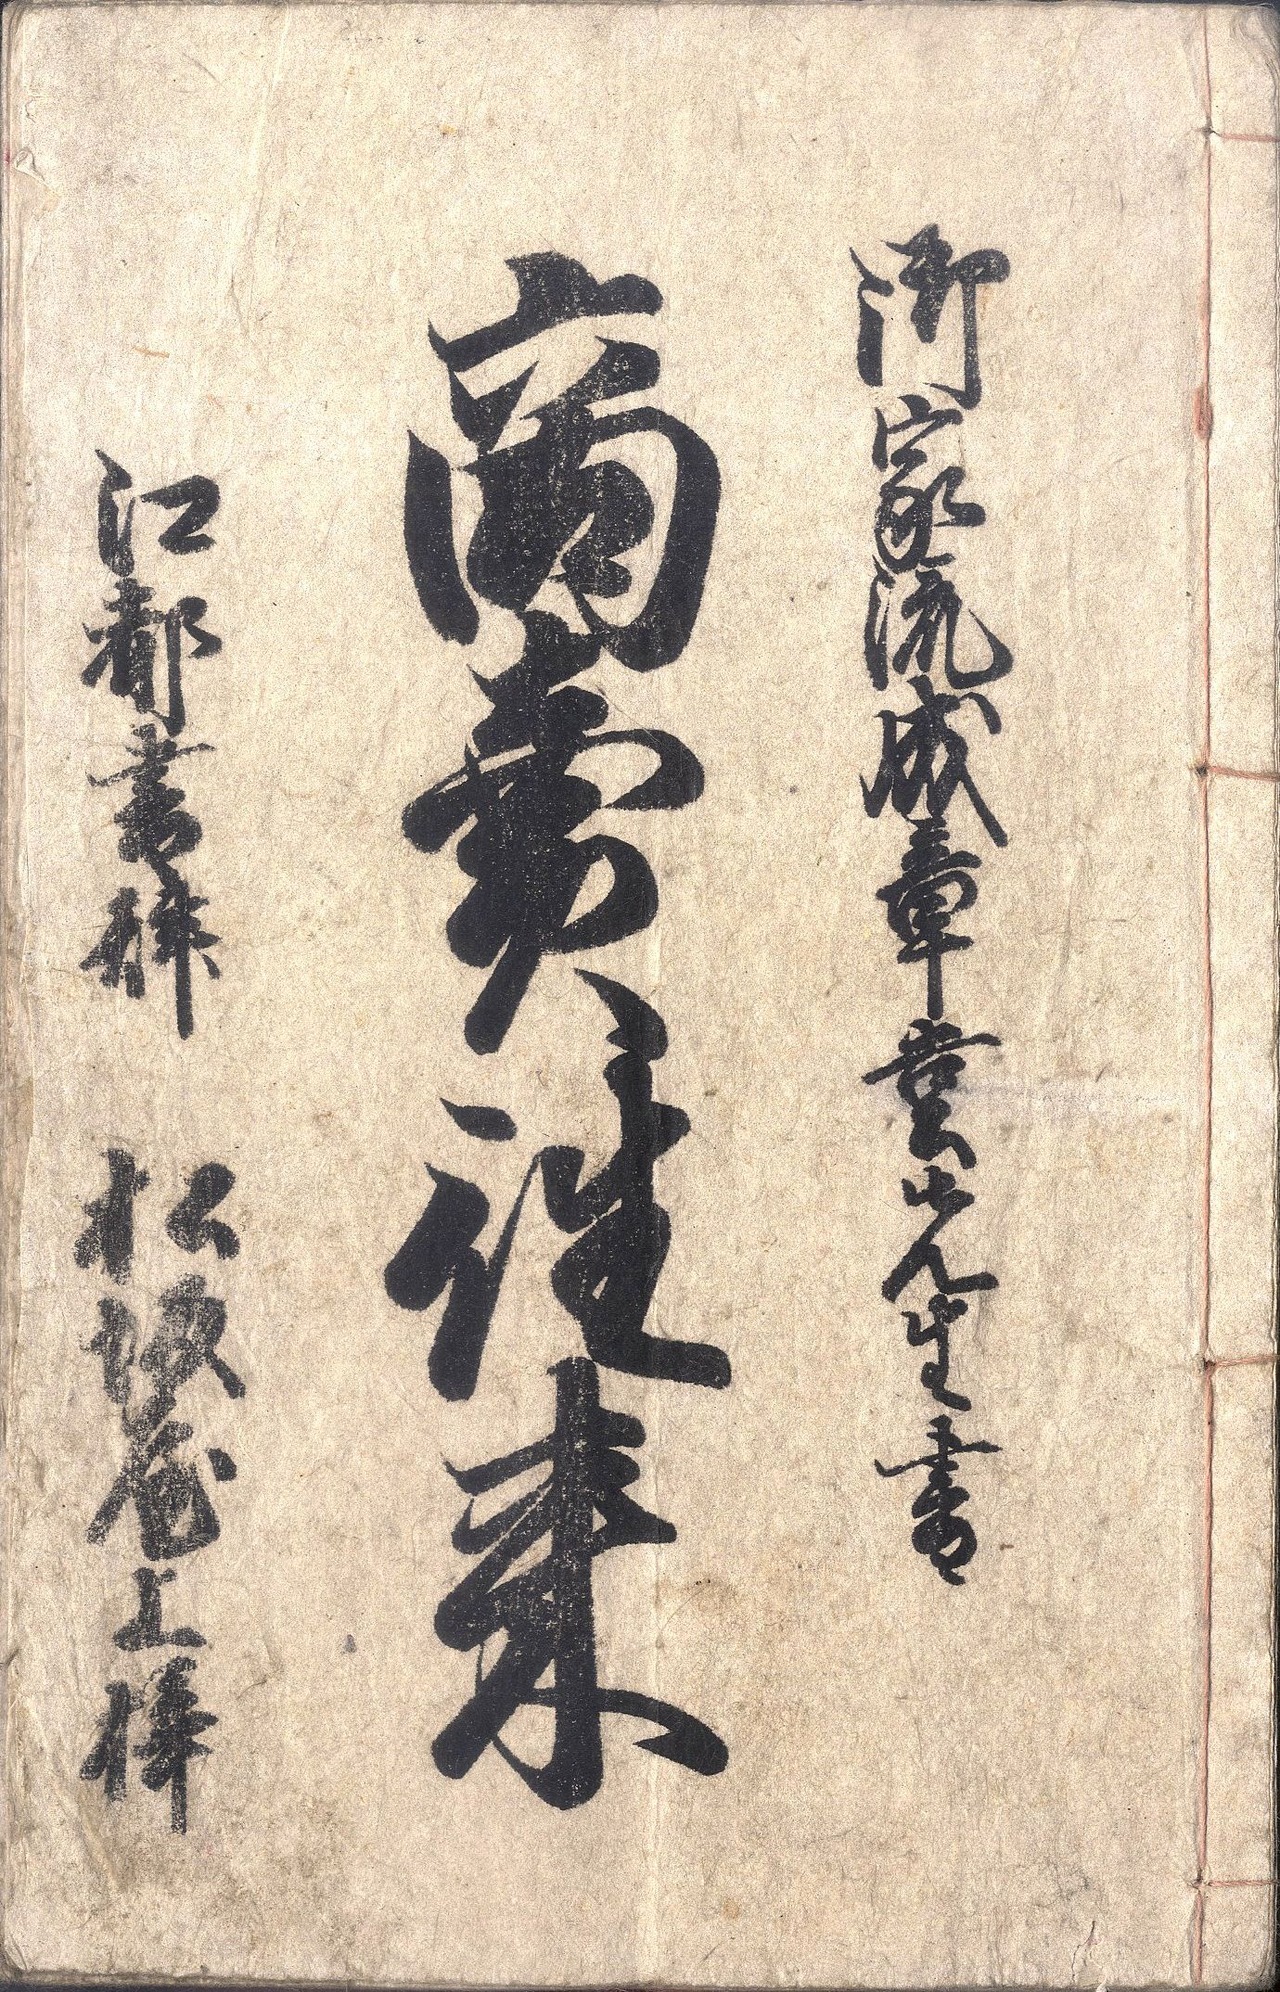 御家流成章堂先生書
商賣往来
江都書林 松坂屋上梓